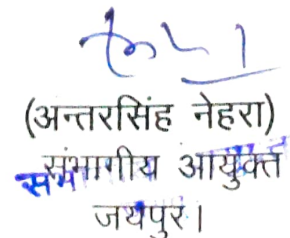 (अन्तरसिंह नेहरा)
संभागीय आयुक्त
जयपुर।